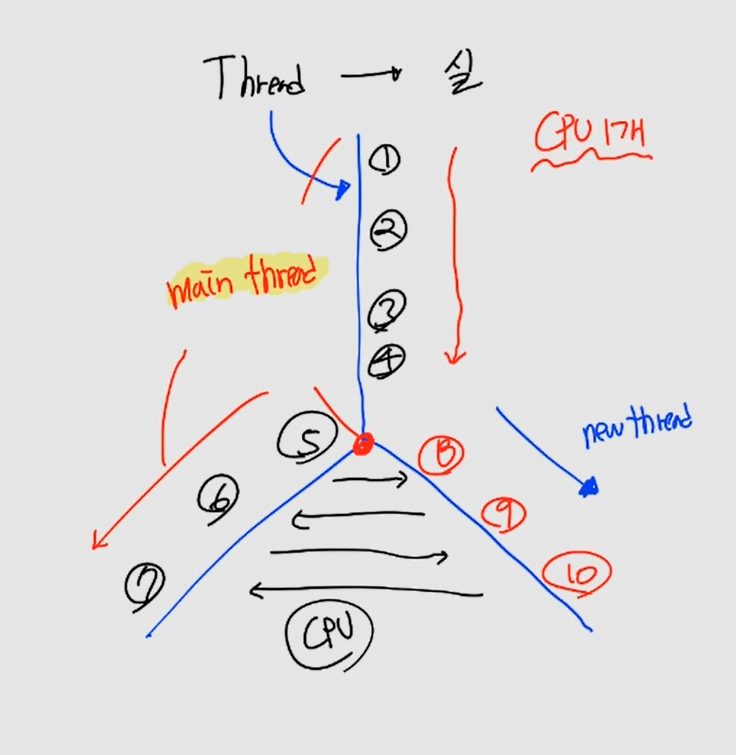 Thread → 실
CPU 1개
①
②
③
main thread
④
⑤
⑧
new thread
⑥
⑨
⑦
⑩
CPU